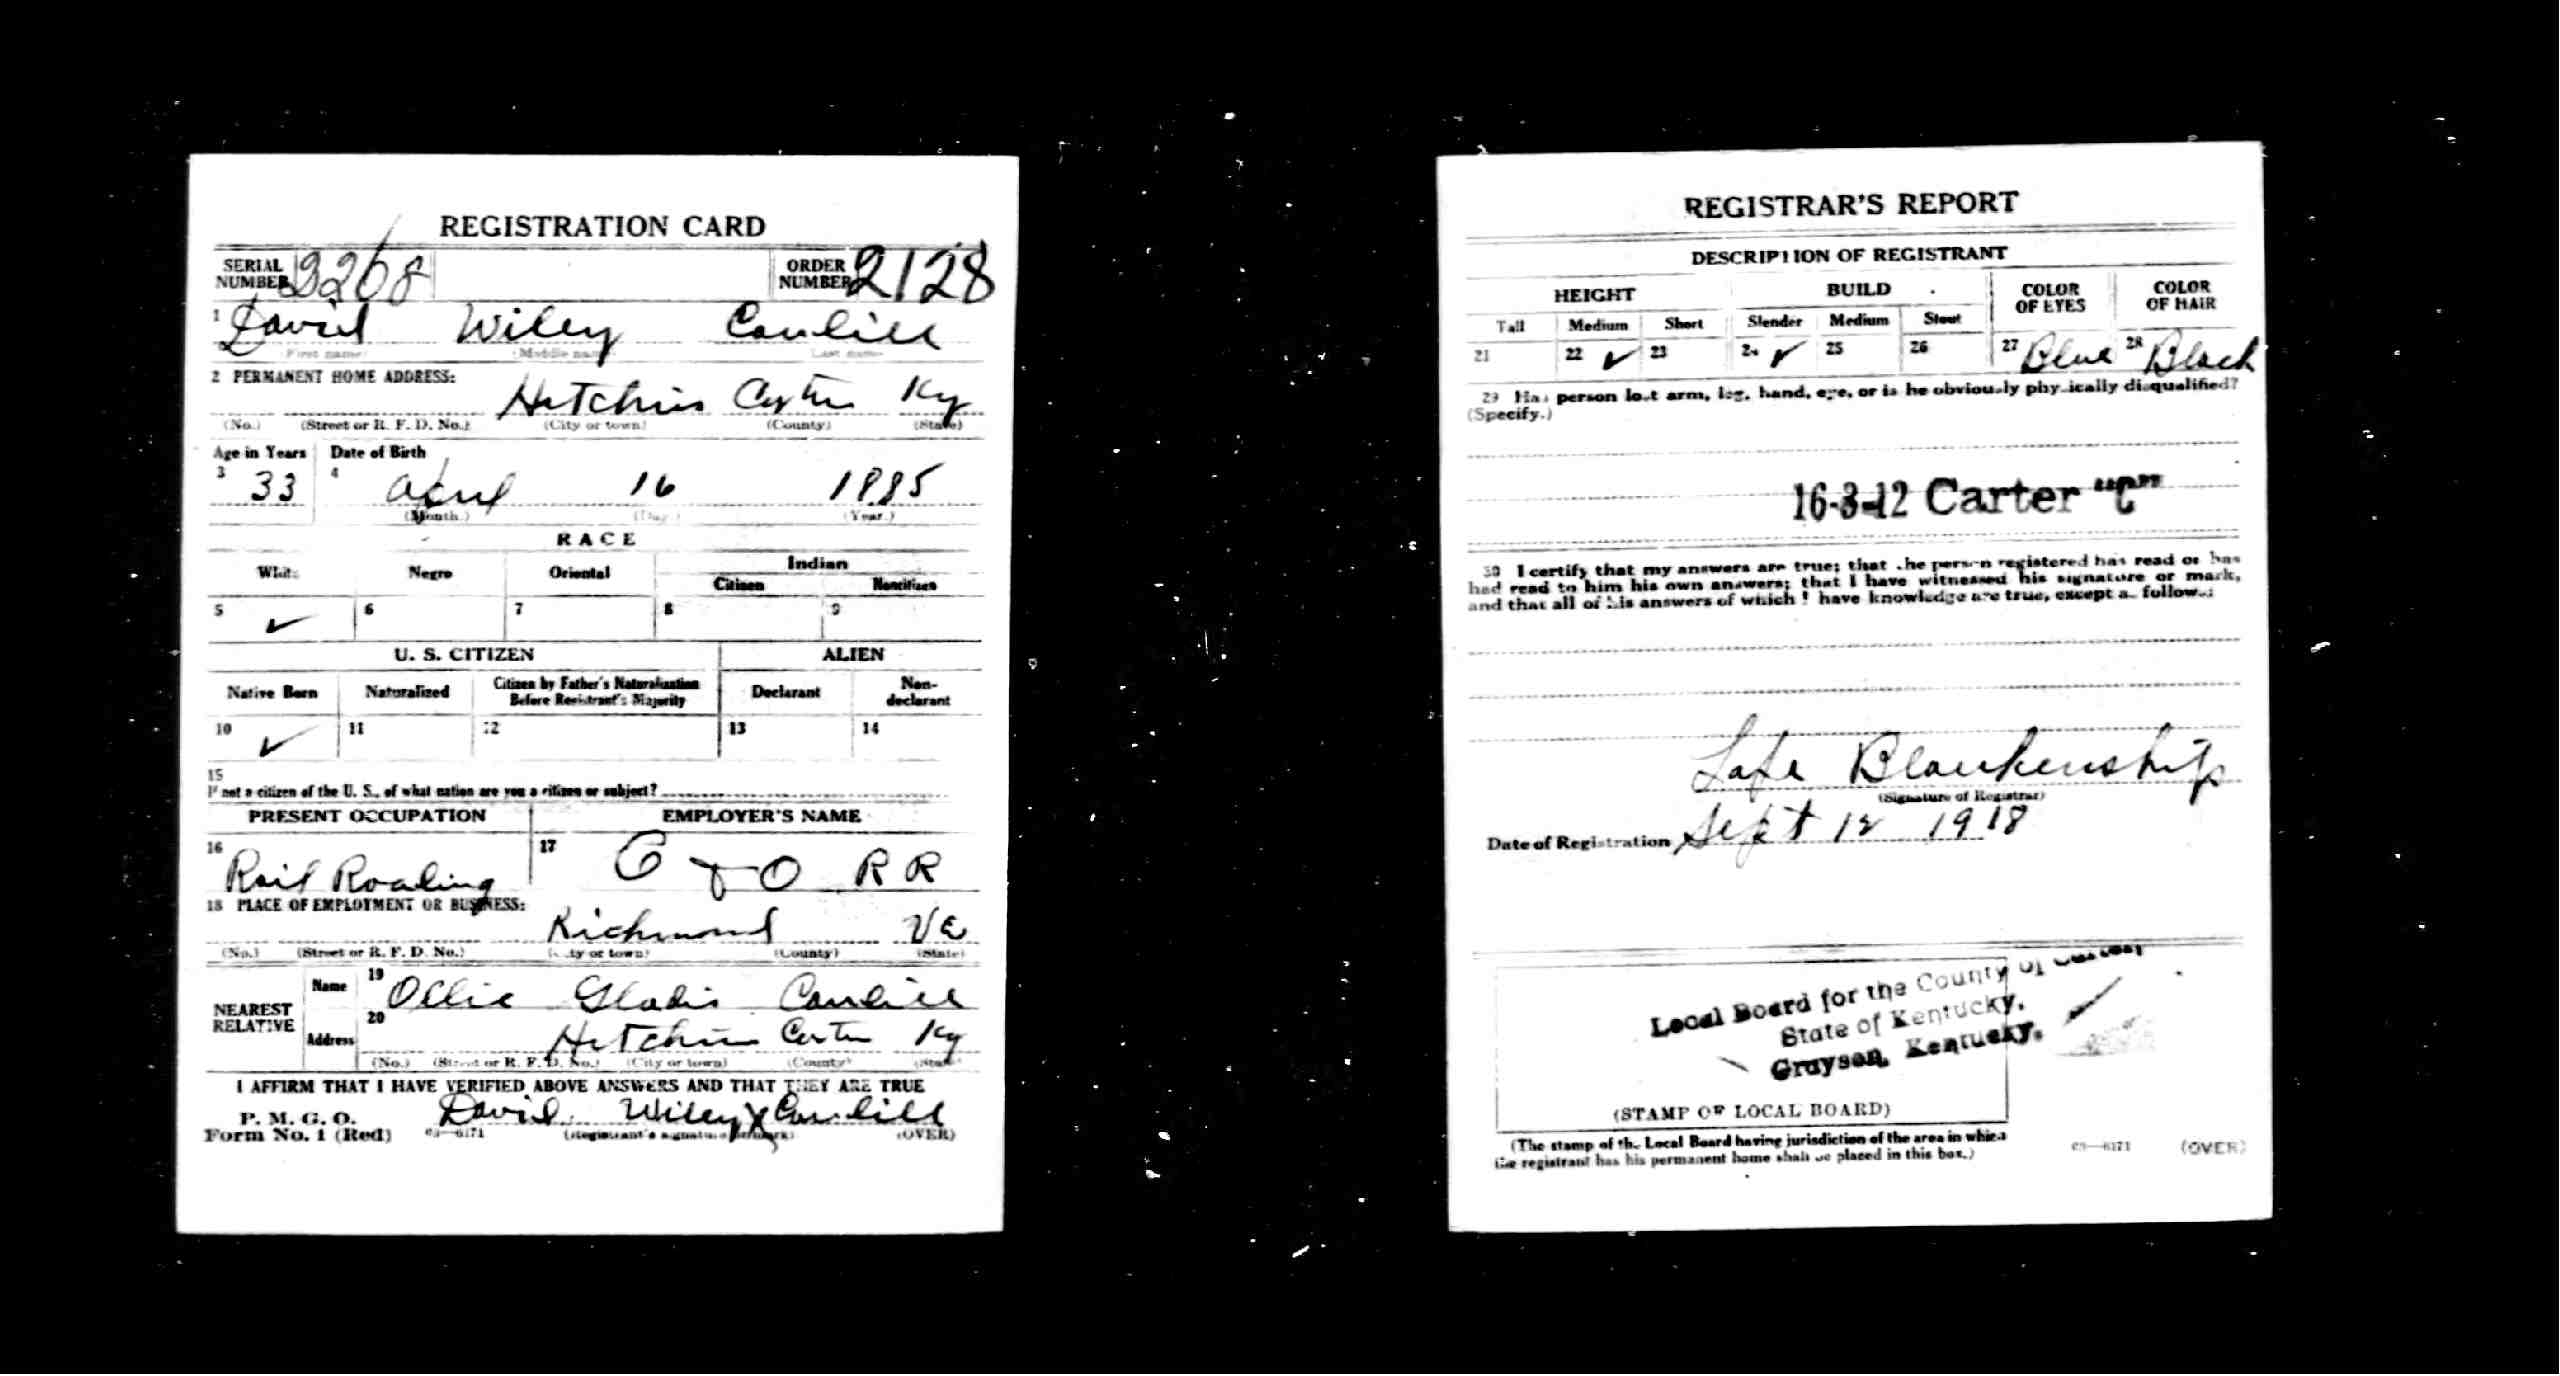 REGISTRATION CARD
SERIAL NUMBER 3268 ORDER NUMBER 2128
1 David Wiley Caudill
(First name) (Middle name) (Last name)
2 PERMANENT HOME ADDRESS:
Hitchins Carter Ky
(No.) (Street or R. F. D. No.) (City or town) (County) (State)
Age in Years Date of Birth
3 33 4 April 16 1885
(Month.) (Day.) (Year.)
RACE
White Negro Oriental Indian
Citizen Noncitizen
5 ✓ 6 7 8 9
U. S. CITIZEN ALIEN
Native Born Naturalized Citizen by Father's Naturalization Before Registrant's Majority Declarant Non-declarant
10 ✓ 11 12 13 14
15
If not a citizen of the U. S., of what nation are you a citizen or subject?
PRESENT OCCUPATION EMPLOYER'S NAME
16 Rail Roading 17 C & O R R
18 PLACE OF EMPLOYMENT OR BUSINESS:
Richmond Va
(No.) (Street or R. F. D. No.) (City or town) (County) (State)
NEAREST RELATIVE Name 19 Ollie Gladis Caudill
Address 20 Hitchins Carter Ky
(No.) (Street or R. F. D. No.) (City or town) (County) (State)
I AFFIRM THAT I HAVE VERIFIED ABOVE ANSWERS AND THAT THEY ARE TRUE
P. M. G. O.
Form No. 1 (Red) 03—6171 David Wiley X Caudill
(Registrant's signature or mark) (OVER)
REGISTRAR'S REPORT
DESCRIPTION OF REGISTRANT
HEIGHT BUILD COLOR OF EYES COLOR OF HAIR
Tall Medium Short Slender Medium Stout
21 22 ✓ 23 24 ✓ 25 26 27 Blue 28 Black
29 Has person lost arm, leg, hand, eye, or is he obviously physically disqualified?
(Specify.)
16-3-12 Carter "C"
30 I certify that my answers are true; that the person registered has read or has
had read to him his own answers; that I have witnessed his signature or mark,
and that all of his answers of which I have knowledge are true, except as follows:
Lafe Blankenship
(Signature of Registrar)
Date of Registration Sept 12 1918
Local Board for the County of Carter,
State of Kentucky,
Grayson, Kentucky.
(STAMP OF LOCAL BOARD)
(The stamp of the Local Board having jurisdiction of the area in which
the registrant has his permanent home shall be placed in this box.)
03—6171 (OVER)